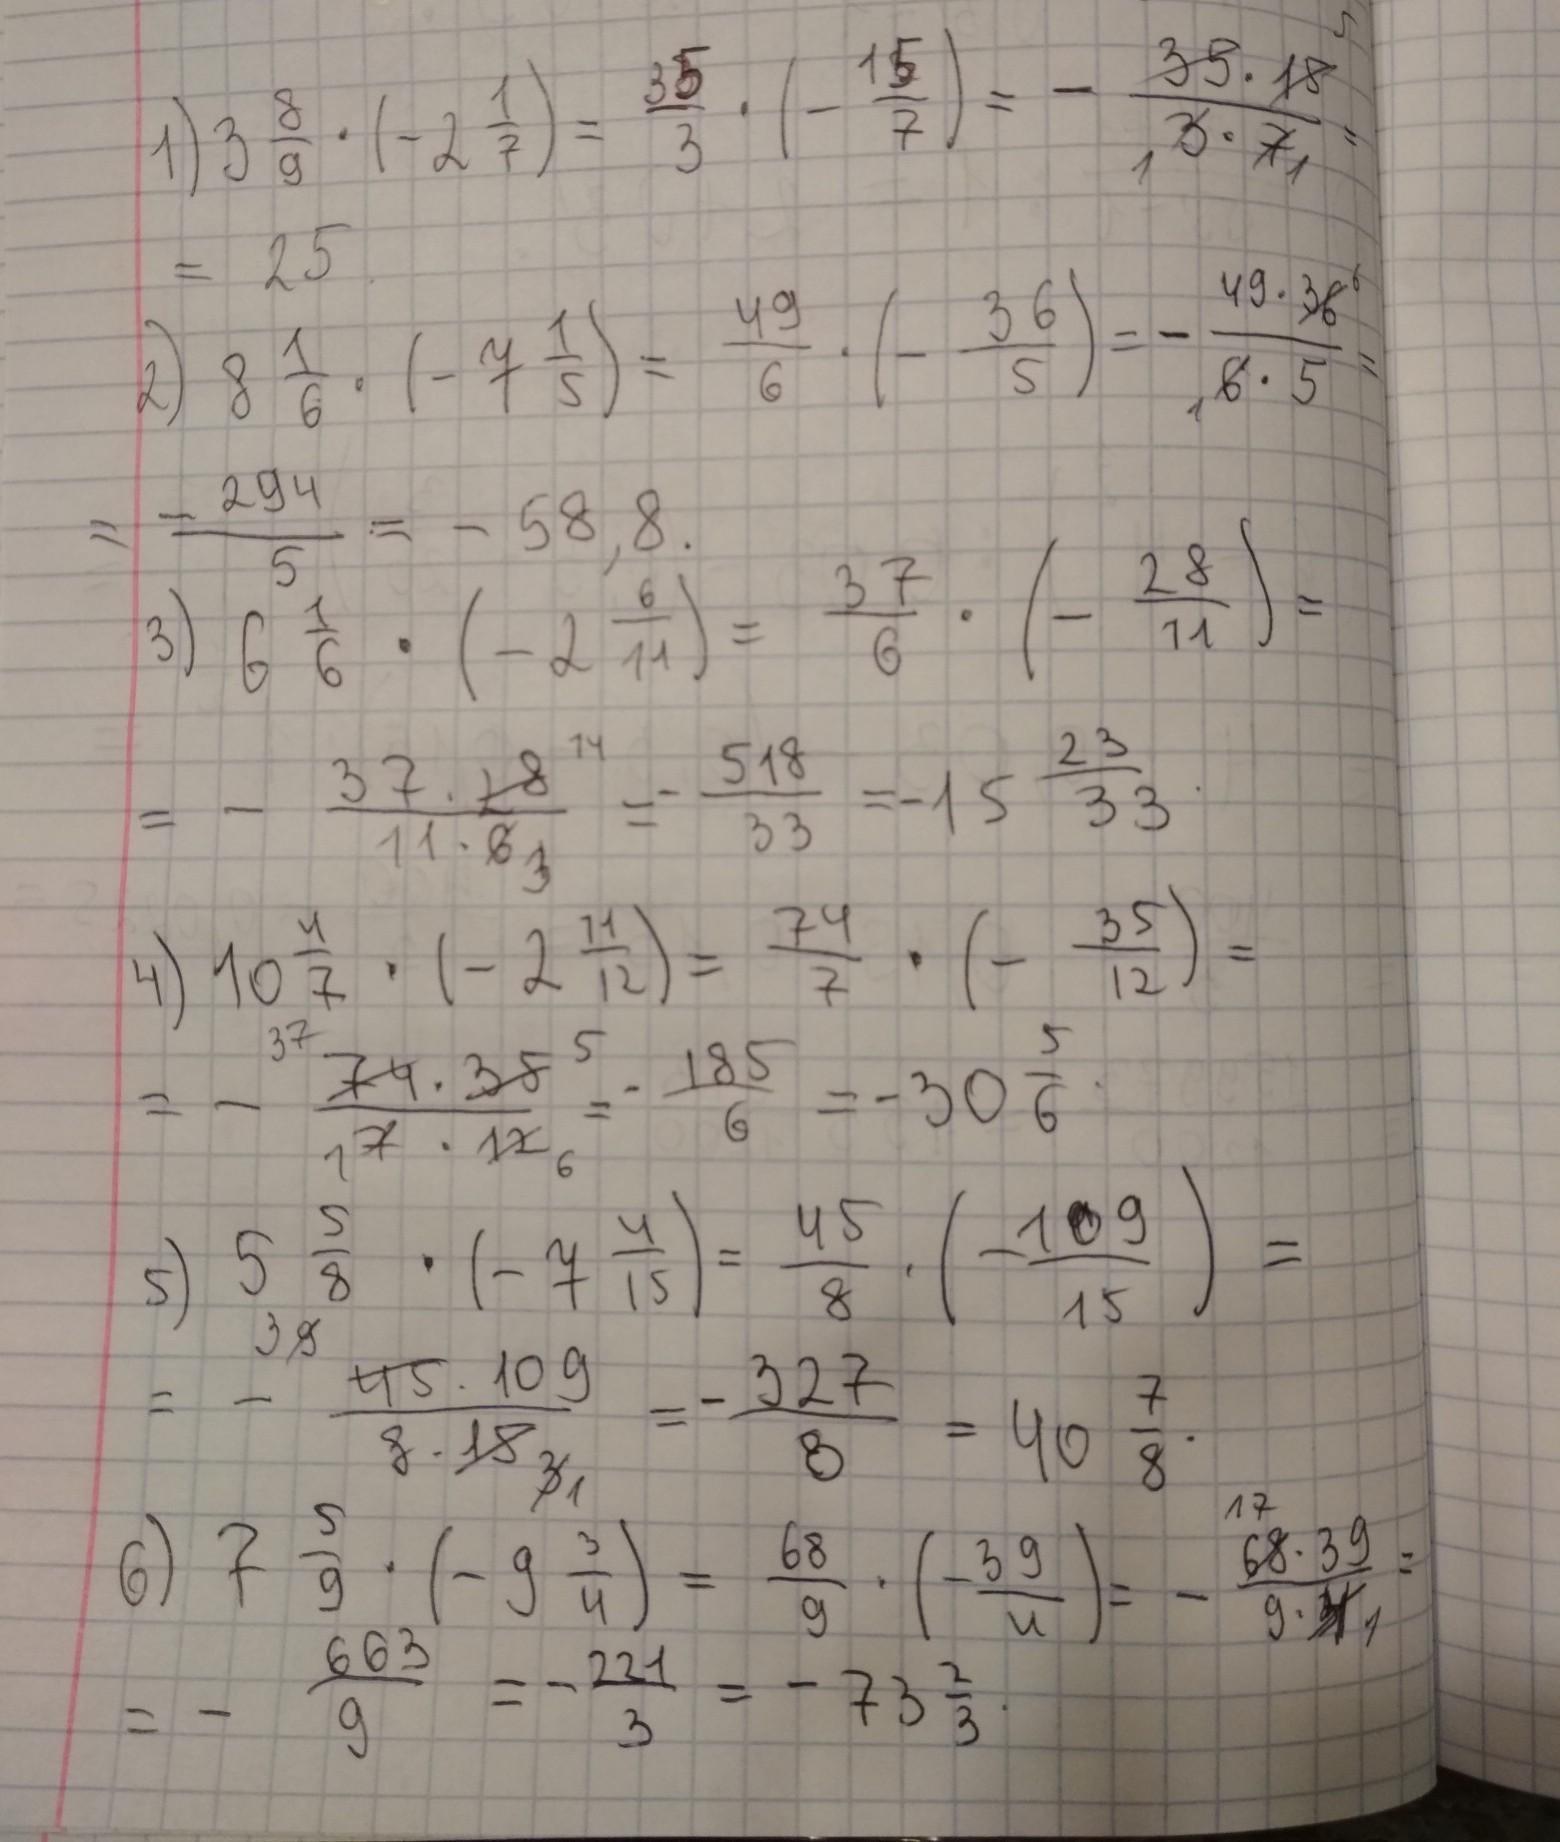 1) 3 8/9 · (- 2 1/7) = 35/3 · (- 15/7) = - 35 · 15/3 · 7 =
= 25
2) 8 1/6 · (- 7 1/5) = 49/6 · (- 36/5) = - 49 · 36 6/1 6 · 5 =
= - 294/5 = - 58,8.
3) 6 1/6 · (- 2 6/11) = 37/6 · (- 28/11) =
= - 37 · 28 14/11 · 6 3 = - 518/33 = - 15 23/33.
4) 10 4/7 · (- 2 11/12) = 74/7 · (- 35/12) =
= - 37 74 · 35 5/1 7 · 12 6 = - 185/6 = - 30 5/6.
5) 5 5/8 · (- 7 4/15) = 45/8 · (- 109/15) =
= - 3 9 45 · 109/8 · 15 3 1 = - 327/8 = 40 7/8.
6) 7 5/9 · (- 9 3/4) = 68/9 · (- 39/4) = - 17 68 · 39/9 · 4 1 =
= - 663/9 = - 221/3 = - 73 2/3.